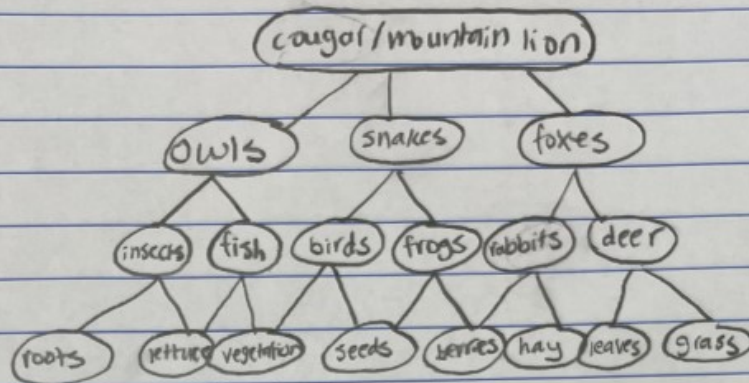 cougar/mountain lion
owls snakes foxes
insects fish birds frogs rabbits deer
roots lettuce vegetation seeds berries hay leaves grass